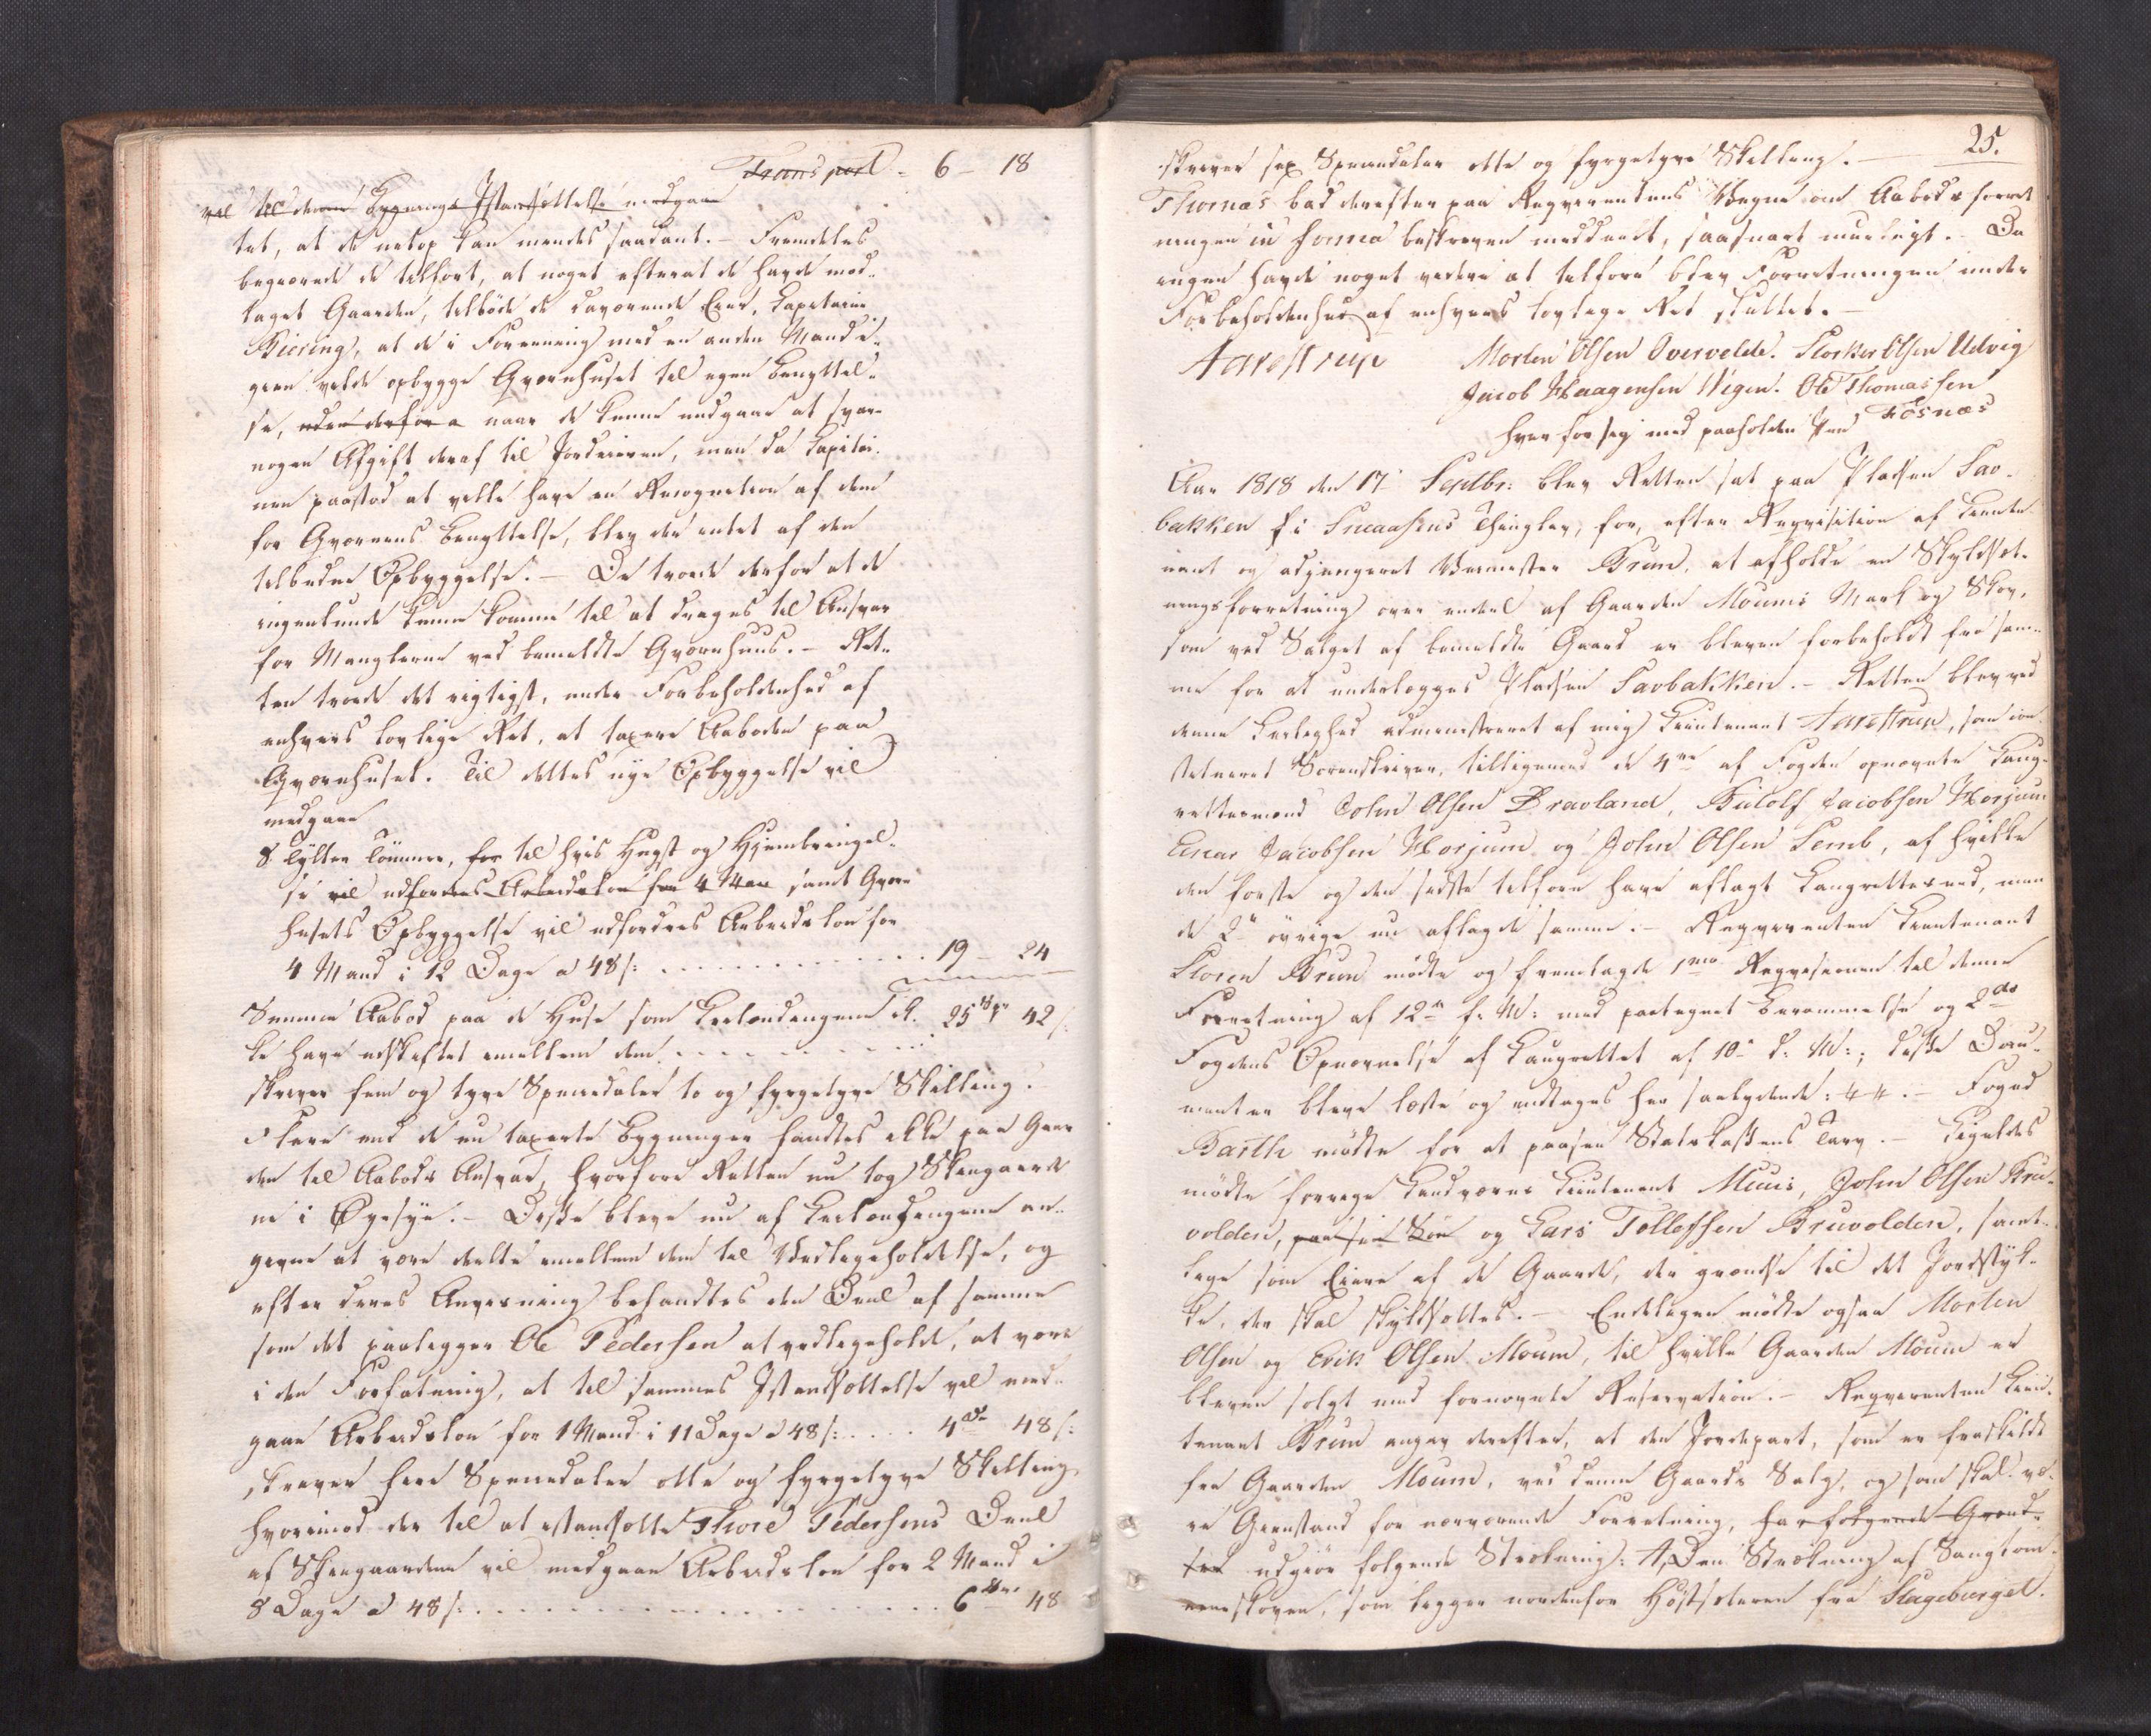 Transport - 6 - 18
vil til denne Bygnings Istandsættelse medgaae
tet, at de netop kan mendes saadant. - Fremdeles
begjærede de tilført, at noget efterat de havde mod-
taget Gaarden, tilbøde de daværende Eier, Capitaine
Biering, at de i Forening med en anden Mand i-
gien vilde opbygge Qværnhuset til egen Benyttel-
se, uden derfor a naar de kunne undgaae at svare
nogen Afgift deraf til Jordeieren, men da Capitai-
nen paastod at ville have en Recognition af dem
for Qværnens Benyttelse, blev der intet af den
tilbudne Opbyggelse. - De troede derfor at de
ingenlunde kunne komme til at drages til Ansvar
for Manglerne ved bemeldte Qværnhuus. - Ret-
ten troede det rigtigst, under Forbeholdenhed af
enhvers lovlige Ret, at taxere Aaboden paa
Qværnhuset. Til dettes nye Opbyggelse vil
medgaae
8 Tylter Tømmer, for til hvis Hugst og Hjembringel-
se vil udfordres Arbeidsløn for 4 Man samt Qværn
husets Opbyggelse vil udfordres Arbeidsløn for
4 Mand i 12 Dage a 48 s: . . . . . . . . . . . . 19 - 24
Summa Aabod paa de Huse som Leilændingene ik- 25 Spd 42 s:
ke have udskiftet imellem dem . . . . . . . .
skriver fem og tyve Speciedaler to og fyrgetyve Skilling.
Flere end de nu taxerte Bygninger fandtes ikke paa Gaar
den til Aabods Ansvar, hvorfore Retten nu tog Skiegaarde
ne i Øiesyn. - Disse bleve nu af Leilændingene an-
givne at være deelte imellem dem til Vedligeholdelse, og
efter deres Anviisning befandtes den Deel af samme
som det paaligger Ole Pedersen at vedligeholde, at være
i den Forfatning, at til sammes Istandsættelse vil med-
gaae Arbeidsløn for 1 Mand i 11 Dage a 48 s: . . . . 4 48 s:
skriver fire Speciedaler otte og fyrgetyve Skilling
hvorimod der til at istandsætte Thore Pedersens Deel
af Skiegaardene vil medgaae Arbeidsløn for 2 Mand i
8 Dage a 48 s: . . . . . . . . . . . . . . . . 6 48
25.
skriver sex Speciedaler otte og fyrgetyve Skilling. -
Thomas bad derefter paa Reqvirentens Vegne om Aabodsforret
ningen in forma beskreven meddeelt, saasnart mueligt. - Da
ingen havde noget videre at tilføre blev Forretningen under
Forbeholdenhed af enhvers lovlige Ret sluttet. -
Aarestrup Morten Olsen Overvelde. Storker Olsen Udvig
Jacob Haagensen Wigen. Ole Thomassen
hver for sig med paaholden Pen Fosnæs
Aar 1818 den 17de Septbr: blev Retten sat paa Pladsen Sav-
bakken i Sneaasens Thinglav, for, efter Reqvisition af Lieute-
nant og adjungeret Veimester Brun, at afholde en Skyldsæt-
ningsforretning over endeel af Gaarden Moums Mark og Skov,
som ved Salget af bemeldte Gaard er bleven forbeholdt fra sam-
me for at underlægges Pladsen Savbakken. - Retten blev ved
denne Leilighed administreret af mig Lieutenant Aarestrup, som con-
stitueret Sorenskriver, tilligemed de 4re af Fogden opnævnte Laug-
rettesmænd John Olsen Bravland, Budolf Jacobsen Horjum
Einar Jacobsen Horjum og John Olsen Semb, af hvilke
den første og den sidste tilforn have aflagt Laugrettesed, men
de 2de øvrige nu aflagde samme. - Reqvirenten Lieutenant
Storen Brun mødte og fremlagde 1mo Reqvisitionen til denne
Forretning af 12te f: M: med paategnet Berammelse og 2do
Fogdens Opnævnelse af Laugrettet af 10de d: M:; disse Docu-
menter bleve læste og indtages her saalydende: ## . - Foged
Barth mødte for at paasee Statskassens Tarv. - Ligeledes
mødte forrige Landværns Lieutenant Muus, John Olsen Bru-
volden, paa sin Søn og Lars Tollefsen Bruvolden, samt-
lige som Eiere af de Gaarde, der grændse til det Jordstyk-
ke, der skal skyldsættes. - Endeligen mødte ogsaa Morten
Olsen og Erik Olsen Moum, til hvilke Gaarden Moum er
bleven solgt med fornævnte Reservation. - Reqvirenten Lieu-
tenant Brun angav derefter, at den Jordepart, som er fraskildt
fra Gaarden Moum, ved denne Gaards Salg, og som skal væ-
re Gienstand for nærværende Forretning, har følgende Grænd-
ser udgiør følgende Strækning: A, Den Strækning af Sangtom-
meskoven, som ligger nordenfor Høstsæteren fra Stageberget.